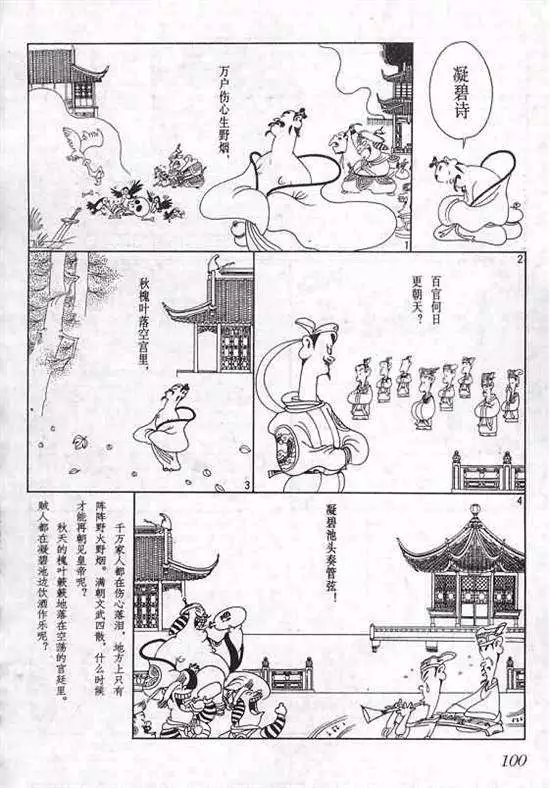 凝碧诗
万户伤心生野烟，
1
百官何日
更朝天？
2
秋槐叶落空宫里，
3
凝碧池头奏管弦！
4
千万家人都在伤心落泪，地方上只有
阵阵野火野烟。满朝文武四散，什么时候
才能再朝见皇帝呢？
秋天的槐叶簌簌地落在空荡的宫廷里。
贼人都在凝碧池边饮酒作乐呢？
100